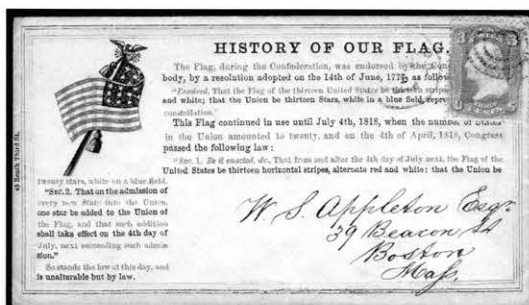 HISTORY OF OUR FLAG.
The Flag, during the Confederation, was endorsed by the Con
body, by a resolution adopted on the 14th of June, 1777, as follow
"Resolved, That the Flag of the thirteen United States be thirteen stripes
and white; that the Union be thirteen Stars, white in a blue field, repre
constellation."
This Flag continued in use until July 4th, 1818, when the number of States
in the Union amounted to twenty, and on the 4th of April, 1818, Congress
passed the following law:
"Sec. 1. Be it enacted, &c., That from and after the 4th day of July next, the Flag of the
United States be thirteen horizontal stripes, alternate red and white: that the Union be
twenty stars, white on a blue field.
"Sec. 2. That on the admission of
every new State into the Union,
one star be added to the Union of
the Flag, and that such addition
shall take effect on the 4th day of
July, next succeeding such admis-
sion."
So stands the law at this day, and
is unalterable but by law.
45 South Third St.
W. S. Appleton Esqr.
39 Beacon St
Boston
Mass.